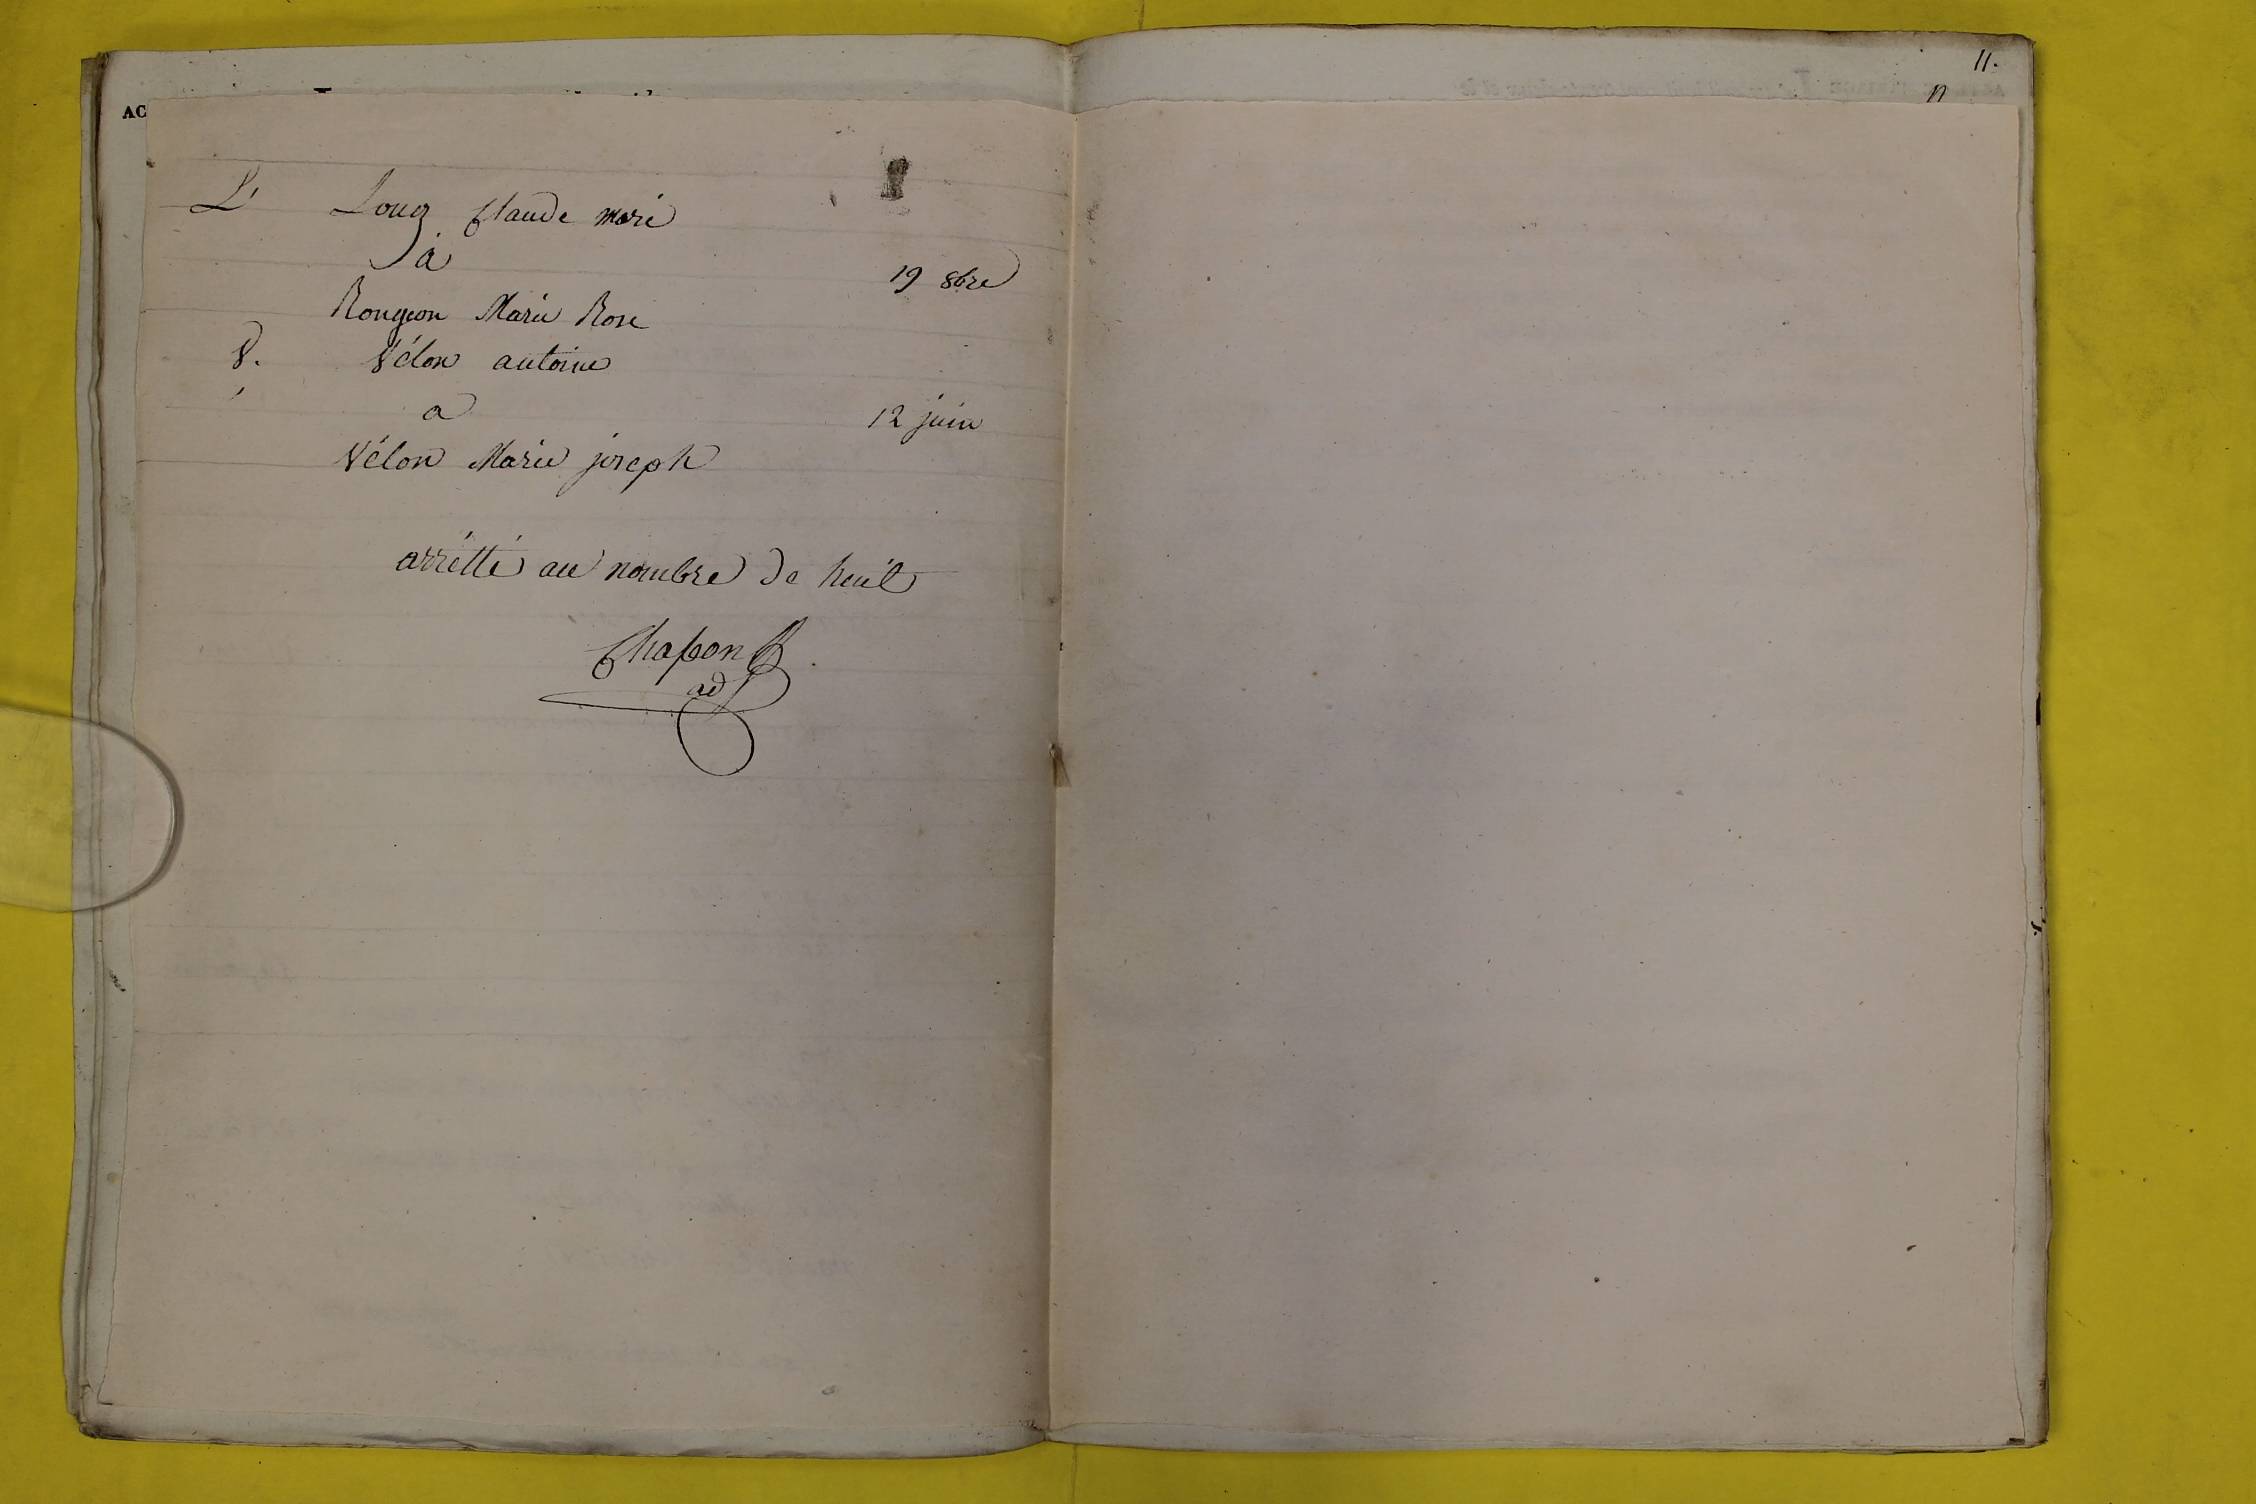 11.
AC
L Loug Claude marié
à
19 8bre
Rougeon Marie Rose
V. Vélon antoine
a
12 juin
Vélon Marie joseph
arrêtté au nombre de huit
Chapon
adj